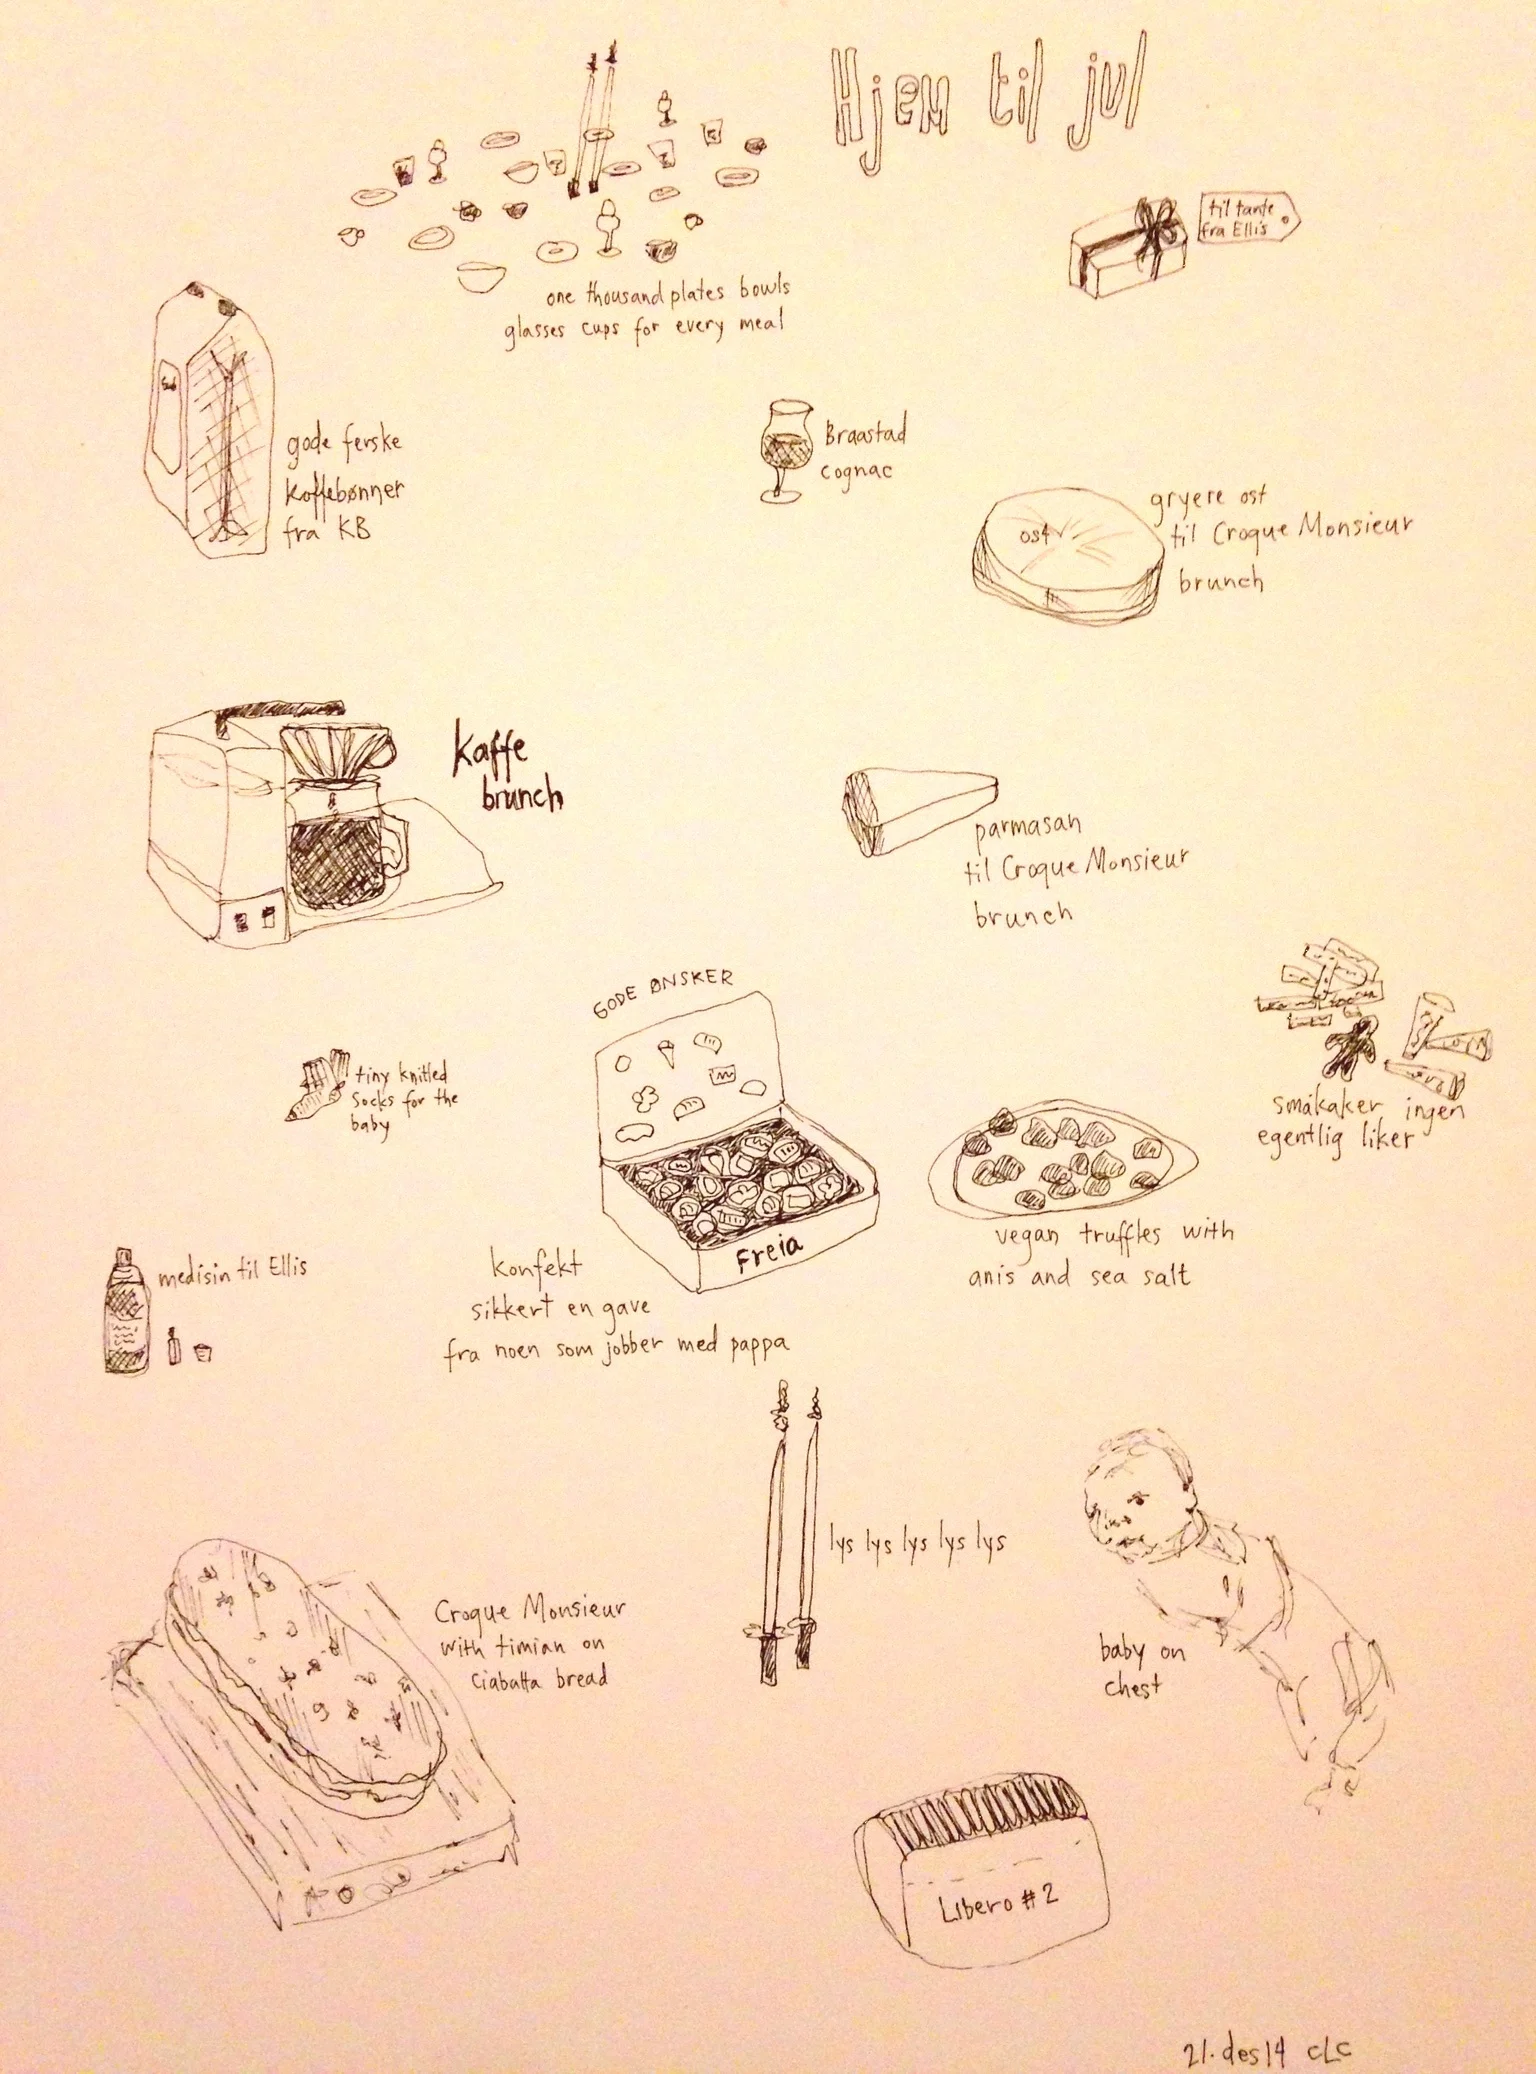 Hjem til jul
til tante
fra Ellis
one thousand plates bowls
glasses cups for every meal
gode ferske
koffebønner
fra KB
Braastad
cognac
ost
gryere ost
til Croque Monsieur
brunch
kaffe
brunch
parmasan
til Croque Monsieur
brunch
GODE ØNSKER
Freia
tiny knitted
socks for the
baby
småkaker ingen
egentlig liker
vegan truffles with
anis and sea salt
medisin til Ellis
konfekt
sikkert en gave
fra noen som jobber med pappa
lys lys lys lys lys
Croque Monsieur
with timian on
ciabatta bread
baby on
chest
Libero #2
21.des14 CLC